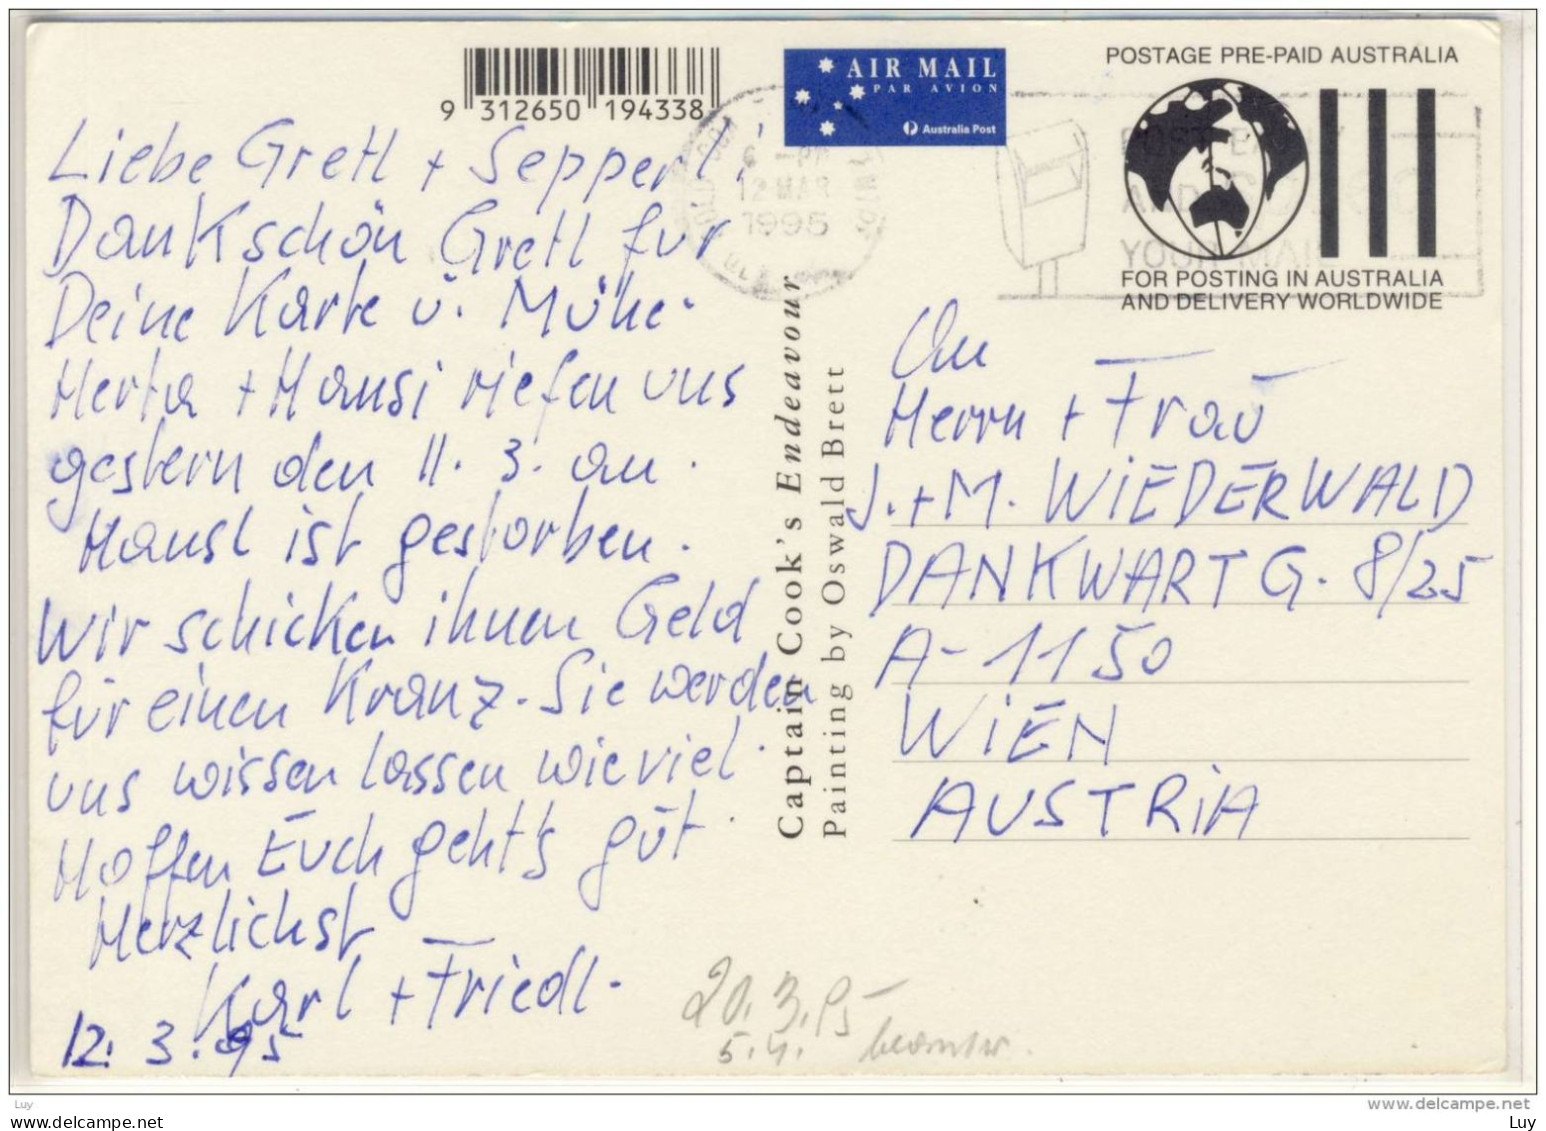 9 312650 194338
AIR MAIL
PAR AVION
Australia Post
POSTAGE PRE-PAID AUSTRALIA
FOR POSTING IN AUSTRALIA
AND DELIVERY WORLDWIDE
6 - PM
12 MAR
1995
POST EARLY
AND
YOUR MAIL
Liebe Gretl + Sepperl!
Dankschön Gretl für
Deine Karte u. Mühe.
Herta + Hansi riefen uns
gestern den 11. 3. an.
Hansl ist gestorben.
Wir schicken ihnen Geld
für einen Kranz. Sie werden
uns wissen lassen wieviel.
Hoffen Euch geht's gut.
Herzlichst
Karl + Friedl.
12. 3. 95
Captain Cook's Endeavour
Painting by Oswald Brett
An
Herrn + Frau
J. + M. WIEDERWALD
DANKWART G. 8/25
A-1150
WIEN
AUSTRIA
20.3.95
5.4.
www.delcampe.net
Luy
www.delcampe.net
Luy